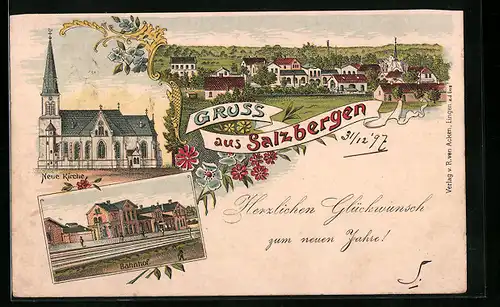 GRUSS
aus Salzbergen
31/12 '97
Neue Kirche
Bahnhof
Herzlichen Glückwunsch
zum neuen Jahre!
Verlag v. R. van Acken, Lingen a.d. Ems